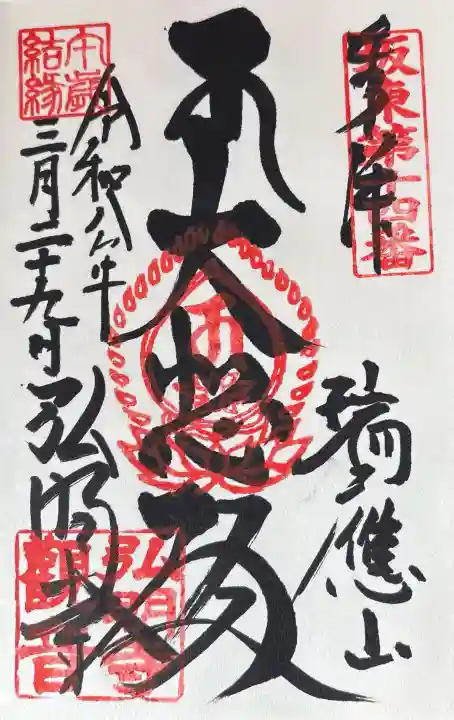 奉拝
坂東第十四番
瑞應山
大悲殿
午歳
結縁
令和八年
三月二十九日
弘明寺
弘明寺
觀音